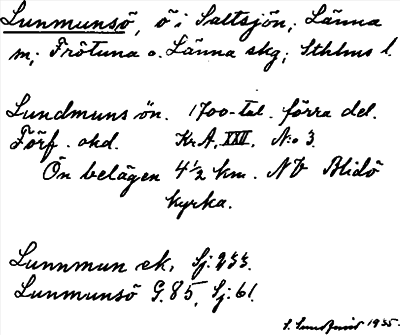 Lunmunsö, ö i Saltsjön; Länna
m; Frötuna o. Länna skg; Sthlms l.
Lundmuns ön. 1700-tal. förra del.
Förf. okd. Kr.A. XXII. N:o 3.
Ön belägen 4½ km. NV Blidö
kyrka.
Lunnmun ek. Sj: 233.
Lunmunsö G. 85, Sj: 61.
1935.